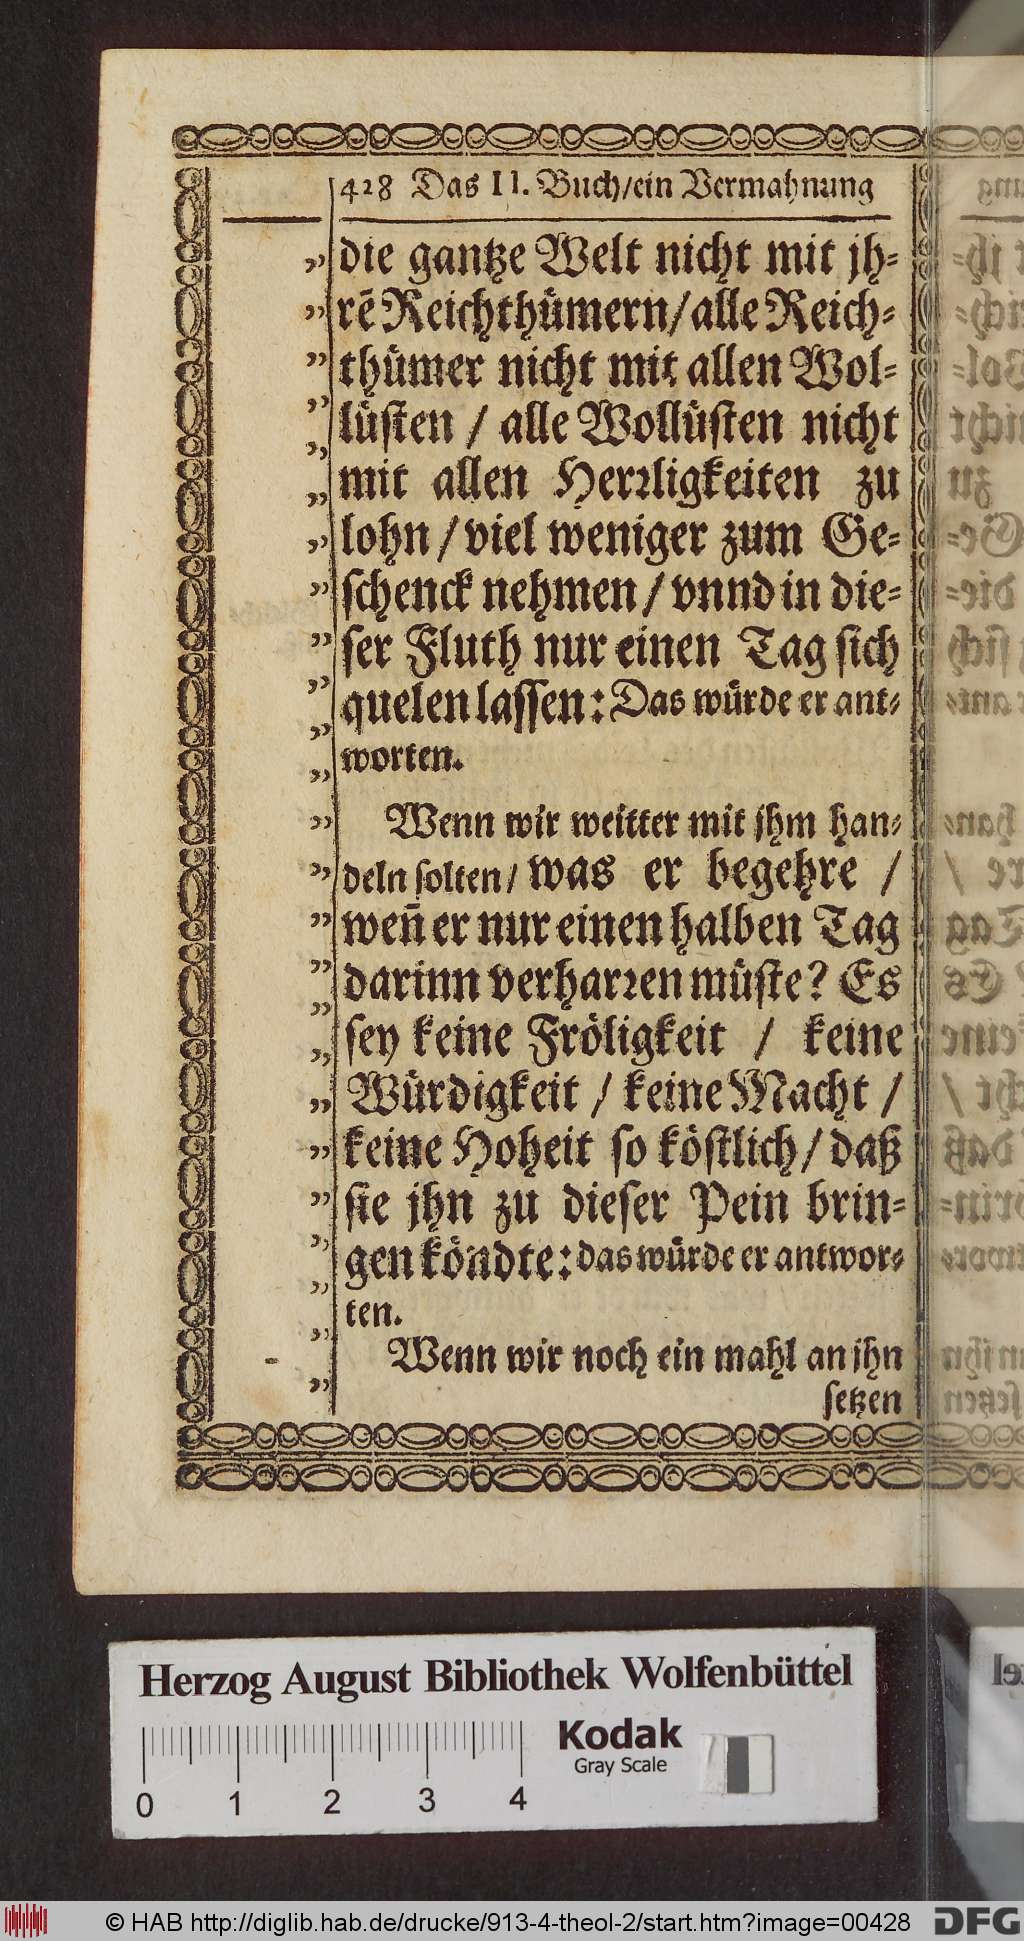 428 Das II. Buch/ein Vermahnung
„ die gantze Welt nicht mit jh⸗
„ rē Reichthümern/alle Reich⸗
„ thümer nicht mit allen Wol⸗
„ lüſten / alle Wollüſten nicht
„ mit allen Herꝛligkeiten zu
„ lohn / viel weniger zum Ge⸗
„ ſchenck nehmen / vnnd in die⸗
„ ſer Fluth nur einen Tag ſich
„ quelen laſſen: Das würde er ant⸗
„ worten.
„ Wenn wir weitter mit jhm han⸗
„ deln ſolten / was er begehre /
„ weñ er nur einen halben Tag
„ darinn verharꝛen müſte? Es
„ ſey keine Fröligkeit / keine
„ Würdigkeit / keine Macht /
„ keine Hoheit ſo köſtlich / daß
„ ſie jhn zu dieſer Pein brin⸗
„ gen köndte: das würde er antwor⸗
„ ten.
„ Wenn wir noch ein mahl an jhn
ſetzen
Herzog August Bibliothek Wolfenbüttel
Kodak
Gray Scale
0 1 2 3 4
© HAB http://diglib.hab.de/drucke/913-4-theol-2/start.htm?image=00428
DFG